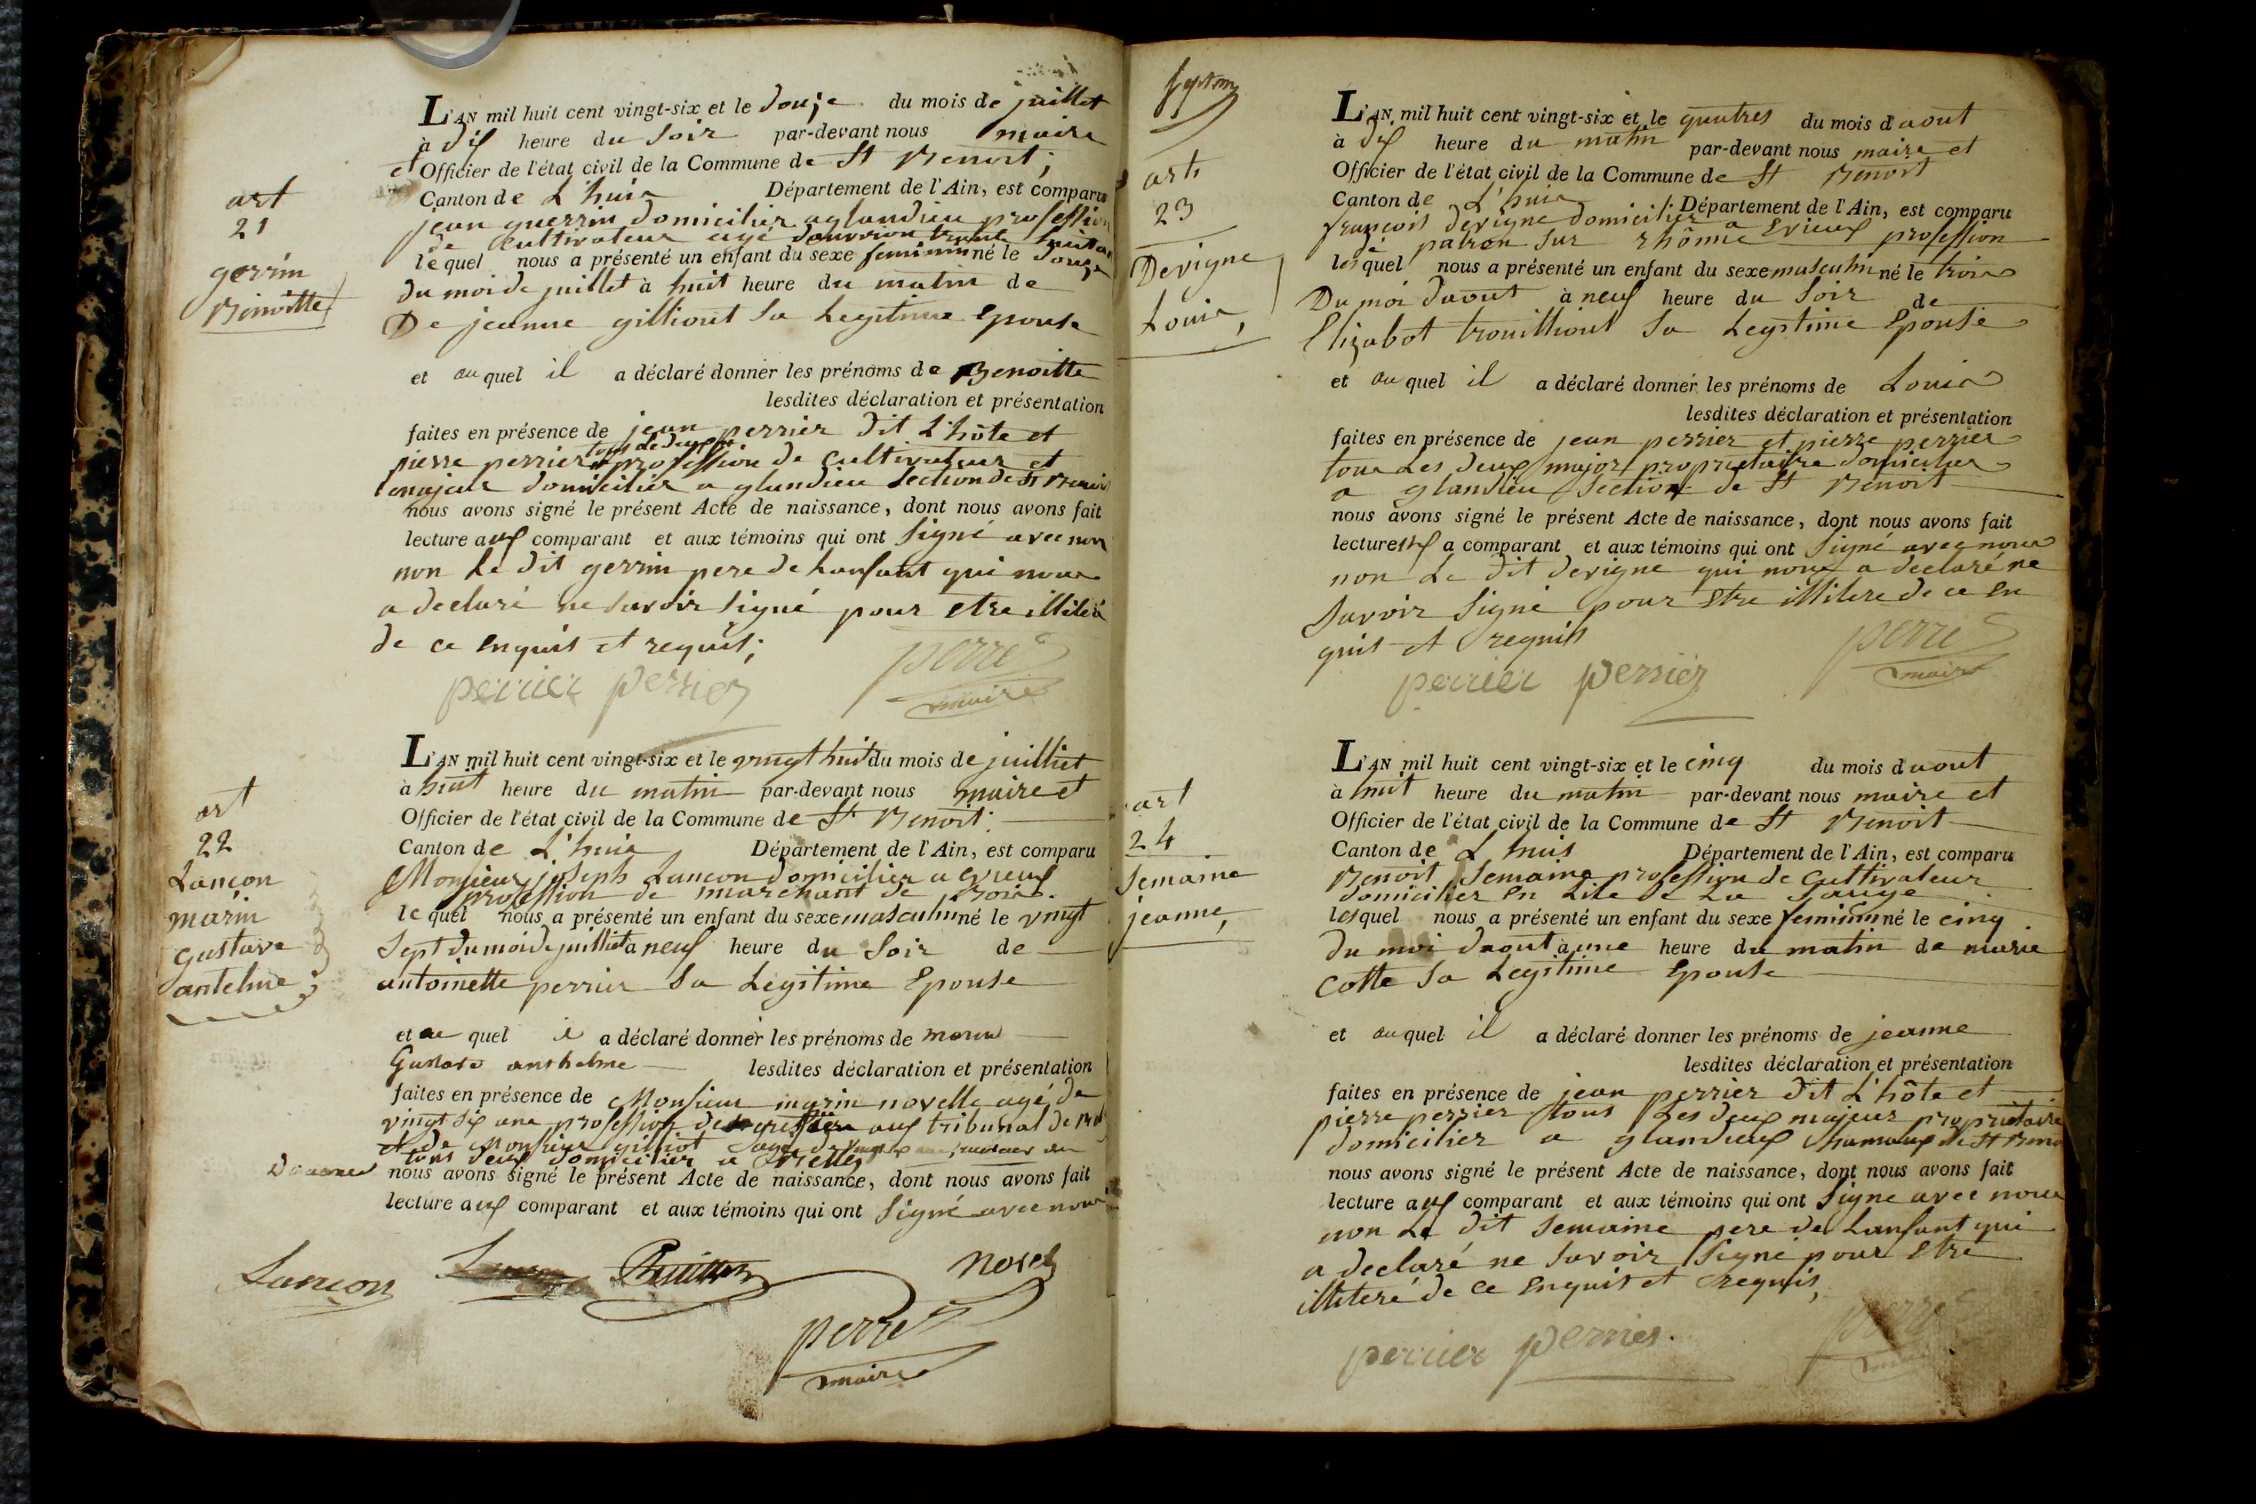 art
21
gerrin
Benoitte
L'AN mil huit cent vingt-six et le douze du mois de juillet
à dix heure du soir par-devant nous maire
et Officier de l'état civil de la Commune de St Benoit;
Canton de L'huis Département de l'Ain, est comparu
jean guerrin domicilier a glandieu profession
de cultivateur agé danviron trente huit an
lequel nous a présenté un enfant du sexe feminin né le douze
du moi de juillet à huit heure du matin de
De jeanne gilliout sa Legitime Epouse
et au quel il a déclaré donner les prénoms de Benoitte
lesdites déclaration et présentation
faites en présence de jean perrier dit L'hôte et
pierre perrier tous les deux profession de cultivateur et
majeur domicilier a glandieu Section de St Benoit
nous avons signé le présent Acte de naissance, dont nous avons fait
lecture aux comparant et aux témoins qui ont signé avec nou
non Le dit gerrin pere de Lanfant qui nous
a declaré ne savoir signé pour etre illiteré
de ce enquis et requis;
perrier perrier perret
maire
art
22
Lançon
marin
gustave
antelme
L'AN mil huit cent vingt-six et le vingt huit du mois de juilliet
à huit heure du matin par-devant nous maire et
Officier de l'état civil de la Commune de St Benoit.
Canton de L'huis Département de l'Ain, est comparu
Monsieur joseph Lancon domicilier a Evieux
profession de marchant de
lequel nous a présenté un enfant du sexe masculin né le vingt
sept du moi de juilliet à neuf heure du soir de
antoinette perrier sa Legitime Epouse
et au quel il a déclaré donner les prénoms de marin
Gustave anthelme lesdites déclaration et présentation
faites en présence de Monsieur marin novelle agé de
vingt six ans profession de greffier aux tribunal de
et de Monsieur gilliot agé de vingt
tous deux domicilier a Belley
nous avons signé le présent Acte de naissance, dont nous avons fait
lecture aux comparant et aux témoins qui ont signé avec nous
Lançon novel
perret
maire
art
23
Devigne
Louis,
L'AN mil huit cent vingt-six et le quatres du mois d'aout
à dix heure du matin par-devant nous maire et
Officier de l'état civil de la Commune de St Benoit
Canton de L'huis Département de l'Ain, est comparu
françois devigne domicilier a Evieux profession
de patron sur rhône
lesquel nous a présenté un enfant du sexe masculin né le trois
Du moi daout à neuf heure du soir de
Elizabot trouilliout sa Legitime Epouse
et au quel il a déclaré donner les prénoms de Louis
lesdites déclaration et présentation
faites en présence de jean perrier et pierre perrier
tous Les deux major propriétaire domicilier
a glandieu Section de St Benoit
nous avons signé le présent Acte de naissance, dont nous avons fait
lecture a comparant et aux témoins qui ont signé avec nous
non Le dit devigne qui nous a declaré ne
savoir signé pour Etre illitere de ce en
quis et requis
perrier perrier perret
maire
art
24
Semaine
jeanne,
L'AN mil huit cent vingt-six et le cinq du mois d'aout
à huit heure du matin par-devant nous maire et
Officier de l'état civil de la Commune de St Benoit
Canton de L'huis Département de l'Ain, est comparu
Benoit Semaine profession de cultivateur
domicilier en Lile de La Sauge
lesquel nous a présenté un enfant du sexe feminin né le cinq
du moi daout à une heure du matin de marie
Cotte sa Legitime Epouse
et au quel il a déclaré donner les prénoms de jeanne
lesdites déclaration et présentation
faites en présence de jean perrier dit L'hôte et
pierre perrier tous Les deux majeur propriétaire
domicilier a glandieux hamaux de St Benoi
nous avons signé le présent Acte de naissance, dont nous avons fait
lecture aux comparant et aux témoins qui ont signe avec nous
non Le dit Semaine pere de Lanfant qui
a declaré ne savoir signé pour Etre
illiteré de ce Enquis et requis,
perrier perrier perret